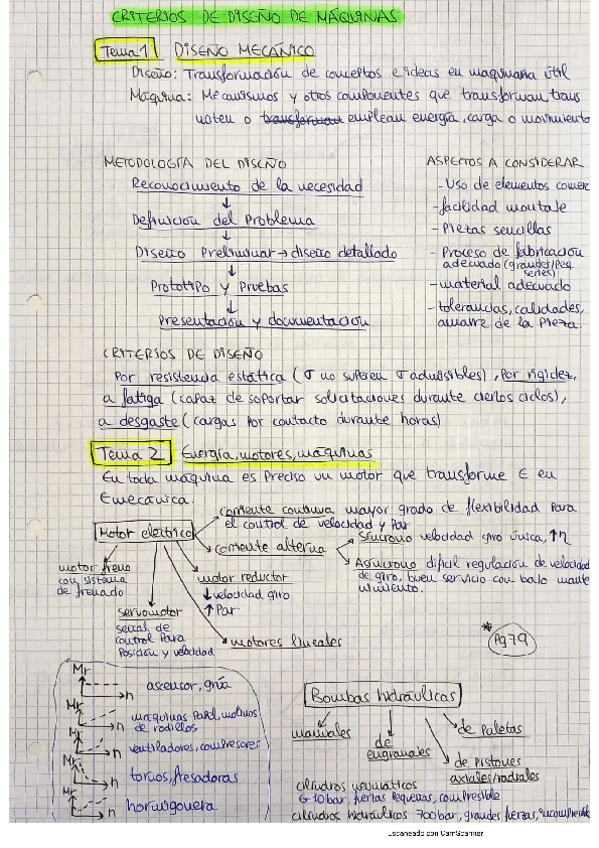 CRITERIOS DE DISEÑO DE MÁQUINAS
Tema 1 DISEÑO MECÁNICO
Diseño: Transformación de conceptos e ideas en maquinaria útil
Máquina: Mecanismos y otros componentes que transforman, trans
miten o transforman emplean energía, carga o movimiento
METODOLOGÍA DEL DISEÑO
Reconocimiento de la necesidad
↓
Definición del Problema
↓
Diseño Preliminar → diseño detallado
↓
Prototipo y Pruebas
↓
Presentación y documentación
ASPECTOS A CONSIDERAR
- Uso de elementos comer
- facilidad montaje
- Piezas sencillas
- Proceso de fabricación
adecuado (grandes/Peq
series)
- material adecuado
- tolerancias, calidades,
amarre de la Pieza
CRITERIOS DE DISEÑO
Por resistencia estática (σ no superen σ admisibles), Por rigidez,
a fatiga (capaz de soportar solicitaciones durante ciertos ciclos),
a desgaste (cargas por contacto durante horas)
Tema 2 Energía, motores, máquinas
En toda máquina es Preciso un motor que transforme E en
Emecánica.
Motor electrico
corriente continua mayor grado de flexibilidad para
el control de velocidad y Par
corriente alterna
Síncrono velocidad giro única, ↑η
Asíncrono dificil regulación de velocidad
de giro, buen servicio con bajo mante
nimiento.
motor freno
con sistema
de frenado
servomotor
señal de
control Para
Posición y velocidad
motor reductor
↓ velocidad giro
↑ Par
motores lineales
* Pg 79
Mr n ascensor, grúa
Mr n máquinas papel, molinos
de rodillos
Mr n ventiladores, compresores
Mr n tornos, fresadoras
Mr n hormigonera
Bombas hidráulicas
manuales
de
engranajes
de Paletas
de Pistones
axiales/radiales
cilindros neumáticos
6-10 bar, fuerzas pequeñas, compresible
cilindros hidráulicos 700 bar, grandes fuerzas, incompresible
Escaneado con CamScanner